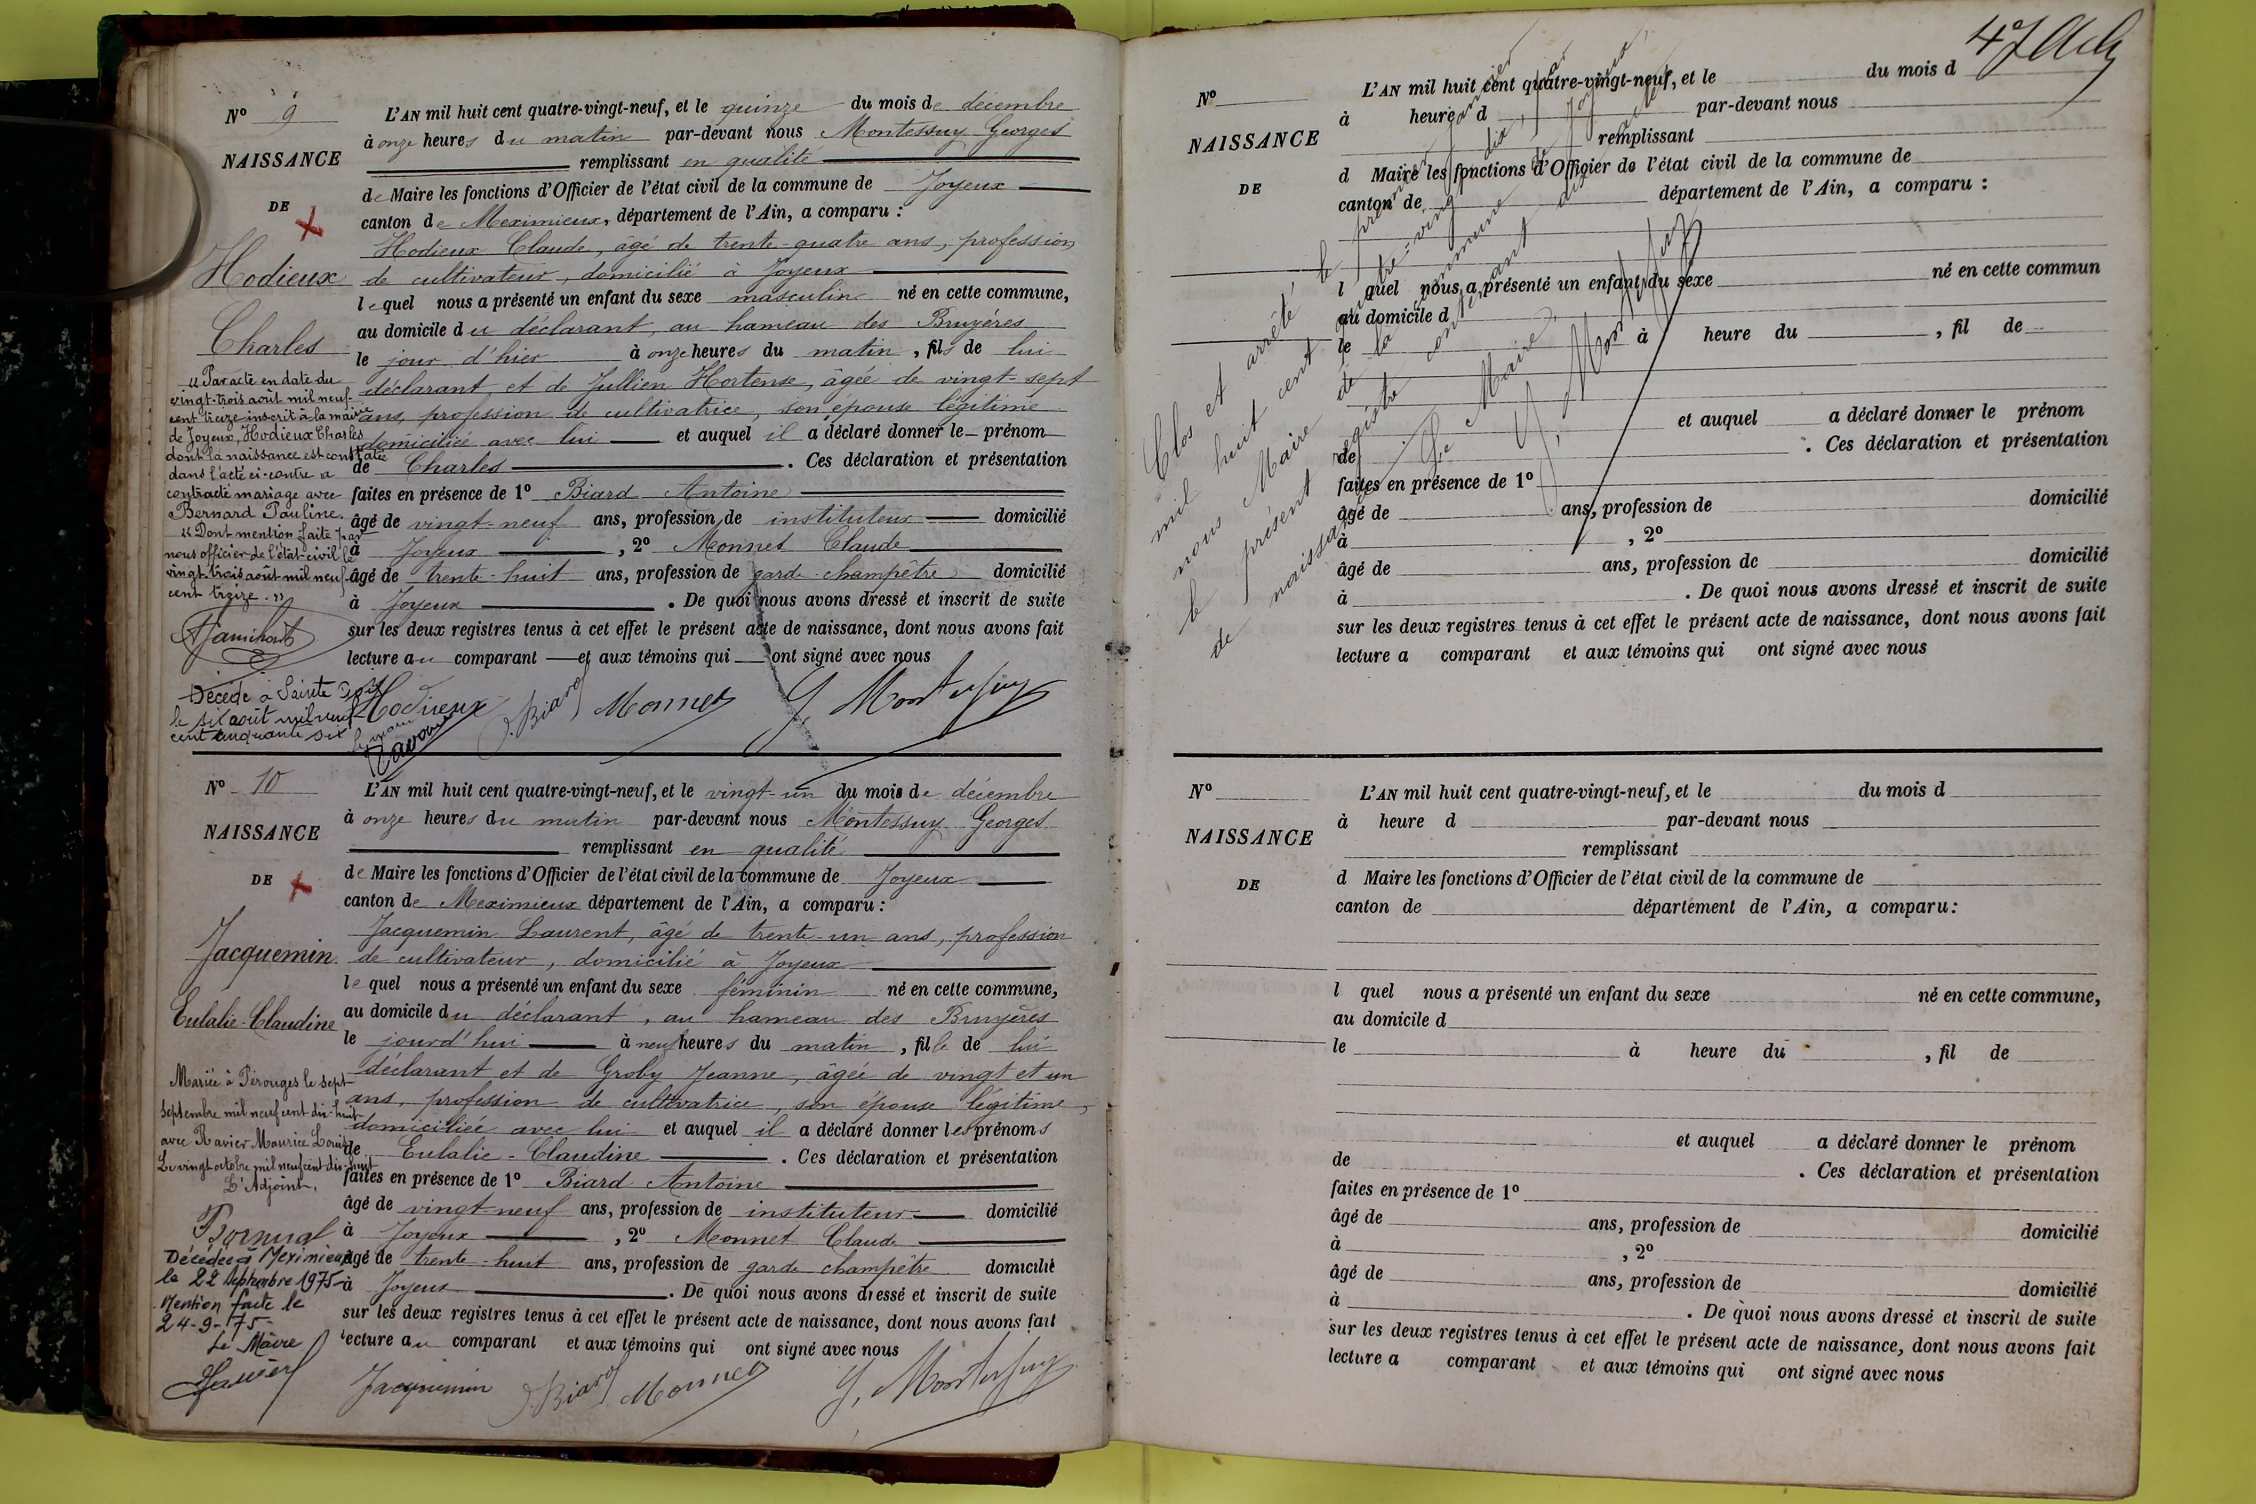 N° 9
NAISSANCE
DE
Hodieux
Charles
"Par acte en date du
vingt-trois août mil neuf
cent treize inscrit à la mairie
de Joyeux, Hodieux Charles
dont la naissance est constatée
dans l'acte ci-contre a
contracté mariage avec
Bernard Pauline.
"Dont mention faite par
nous officier de l'état-civil le
vingt-trois août mil neuf
cent treize."
Décédé à Sainte
le six août mil neuf
cent cinquante six
L'AN mil huit cent quatre-vingt-neuf, et le quinze du mois de décembre
à onze heures du matin par-devant nous Montessuy Georges
remplissant en qualité
de Maire les fonctions d'Officier de l'état civil de la commune de Joyeux
canton de Meximieux, département de l'Ain, a comparu :
Hodieux Claude, âgé de trente-quatre ans, profession
de cultivateur, domicilié à Joyeux
lequel nous a présenté un enfant du sexe masculin né en cette commune,
au domicile du déclarant, au hameau des Bruyéres
le jour d'hier à onze heures du matin, fils de lui
déclarant et de Jullien Hortense, âgée de vingt-sept
ans, profession de cultivatrice, son épouse légitime
domiciliée avec lui et auquel il a déclaré donner le prénom
de Charles. Ces déclaration et présentation
faites en présence de 1° Biard Antoine
âgé de vingt-neuf ans, profession de instituteur domicilié
à Joyeux, 2° Monnet Claude
âgé de trente-huit ans, profession de garde champêtre domicilié
à Joyeux. De quoi nous avons dressé et inscrit de suite
sur les deux registres tenus à cet effet le présent acte de naissance, dont nous avons fait
lecture au comparant et aux témoins qui ont signé avec nous
Hodieux J. Biard Monnet G. Montessuy
N° 10
NAISSANCE
DE
Jacquemin
Eulalie-Claudine
Mariée à Pérouges le sept
septembre mil neuf cent dix-huit
avec Ravier Maurice Louis
Le vingt octobre mil neuf cent dix-huit
L'Adjoint,
Décédée à Meximieux
le 22 Septembre 1975
Mention faite le
24-9-75
Le Maire
L'AN mil huit cent quatre-vingt-neuf, et le vingt-un du mois de décembre
à onze heures du matin par-devant nous Montessuy Georges
remplissant en qualité
de Maire les fonctions d'Officier de l'état civil de la commune de Joyeux
canton de Meximieux département de l'Ain, a comparu :
Jacquemin Laurent, âgé de trente-un ans, profession
de cultivateur, domicilié à Joyeux
lequel nous a présenté un enfant du sexe féminin né en cette commune,
au domicile du déclarant, au hameau des Bruyères
le jourd'hui à neuf heures du matin, fille de lui
déclarant et de Groby Jeanne, âgée de vingt et un
ans, profession de cultivatrice, son épouse légitime,
domiciliée avec lui et auquel il a déclaré donner les prénoms
de Eulalie-Claudine. Ces déclaration et présentation
faites en présence de 1° Biard Antoine
âgé de vingt-neuf ans, profession de instituteur domicilié
à Joyeux, 2° Monnet Claude
âgé de trente-huit ans, profession de garde champêtre domicilié
à Joyeux. De quoi nous avons dressé et inscrit de suite
sur les deux registres tenus à cet effet le présent acte de naissance, dont nous avons fait
lecture au comparant et aux témoins qui ont signé avec nous
Jacquemin J. Biard Monnet G. Montessuy
47
N°
NAISSANCE
DE
L'AN mil huit cent quatre-vingt-neuf, et le du mois d
à heure d par-devant nous
remplissant
d Maire les fonctions d'Officier de l'état civil de la commune de
canton de département de l'Ain, a comparu :
l quel nous a présenté un enfant du sexe né en cette commun
au domicile d
le à heure du , fil de
et auquel a déclaré donner le prénom
de . Ces déclaration et présentation
faites en présence de 1°
âgé de ans, profession de domicilié
à , 2°
âgé de ans, profession de domicilié
à . De quoi nous avons dressé et inscrit de suite
sur les deux registres tenus à cet effet le présent acte de naissance, dont nous avons fait
lecture a comparant et aux témoins qui ont signé avec nous
Clos et arrêté le premier janvier
mil huit cent quatre-vingt-dix, par
nous Maire de la commune de Joyeux,
le présent registre contenant dix actes
de naissance.
Le Maire,
G. Montessuy
N°
NAISSANCE
DE
L'AN mil huit cent quatre-vingt-neuf, et le du mois d
à heure d par-devant nous
remplissant
d Maire les fonctions d'Officier de l'état civil de la commune de
canton de département de l'Ain, a comparu :
l quel nous a présenté un enfant du sexe né en cette commune,
au domicile d
le à heure du , fil de
et auquel a déclaré donner le prénom
de . Ces déclaration et présentation
faites en présence de 1°
âgé de ans, profession de domicilié
à , 2°
âgé de ans, profession de domicilié
à . De quoi nous avons dressé et inscrit de suite
sur les deux registres tenus à cet effet le présent acte de naissance, dont nous avons fait
lecture a comparant et aux témoins qui ont signé avec nous